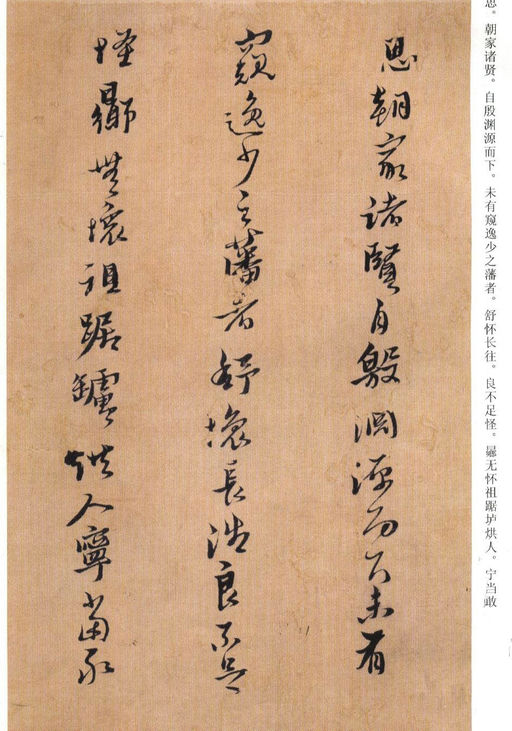 思。朝家诸贤。自殷渊源而下。未有窥逸少之藩者。舒怀长往。良不足怪。曏无怀祖踞垆烘人。宁当敢
思朝家諸賢自殷淵源而下未有
窺逸少之藩者舒懷長往良不足
怪曏無懷祖踞罏烘人寧當敢